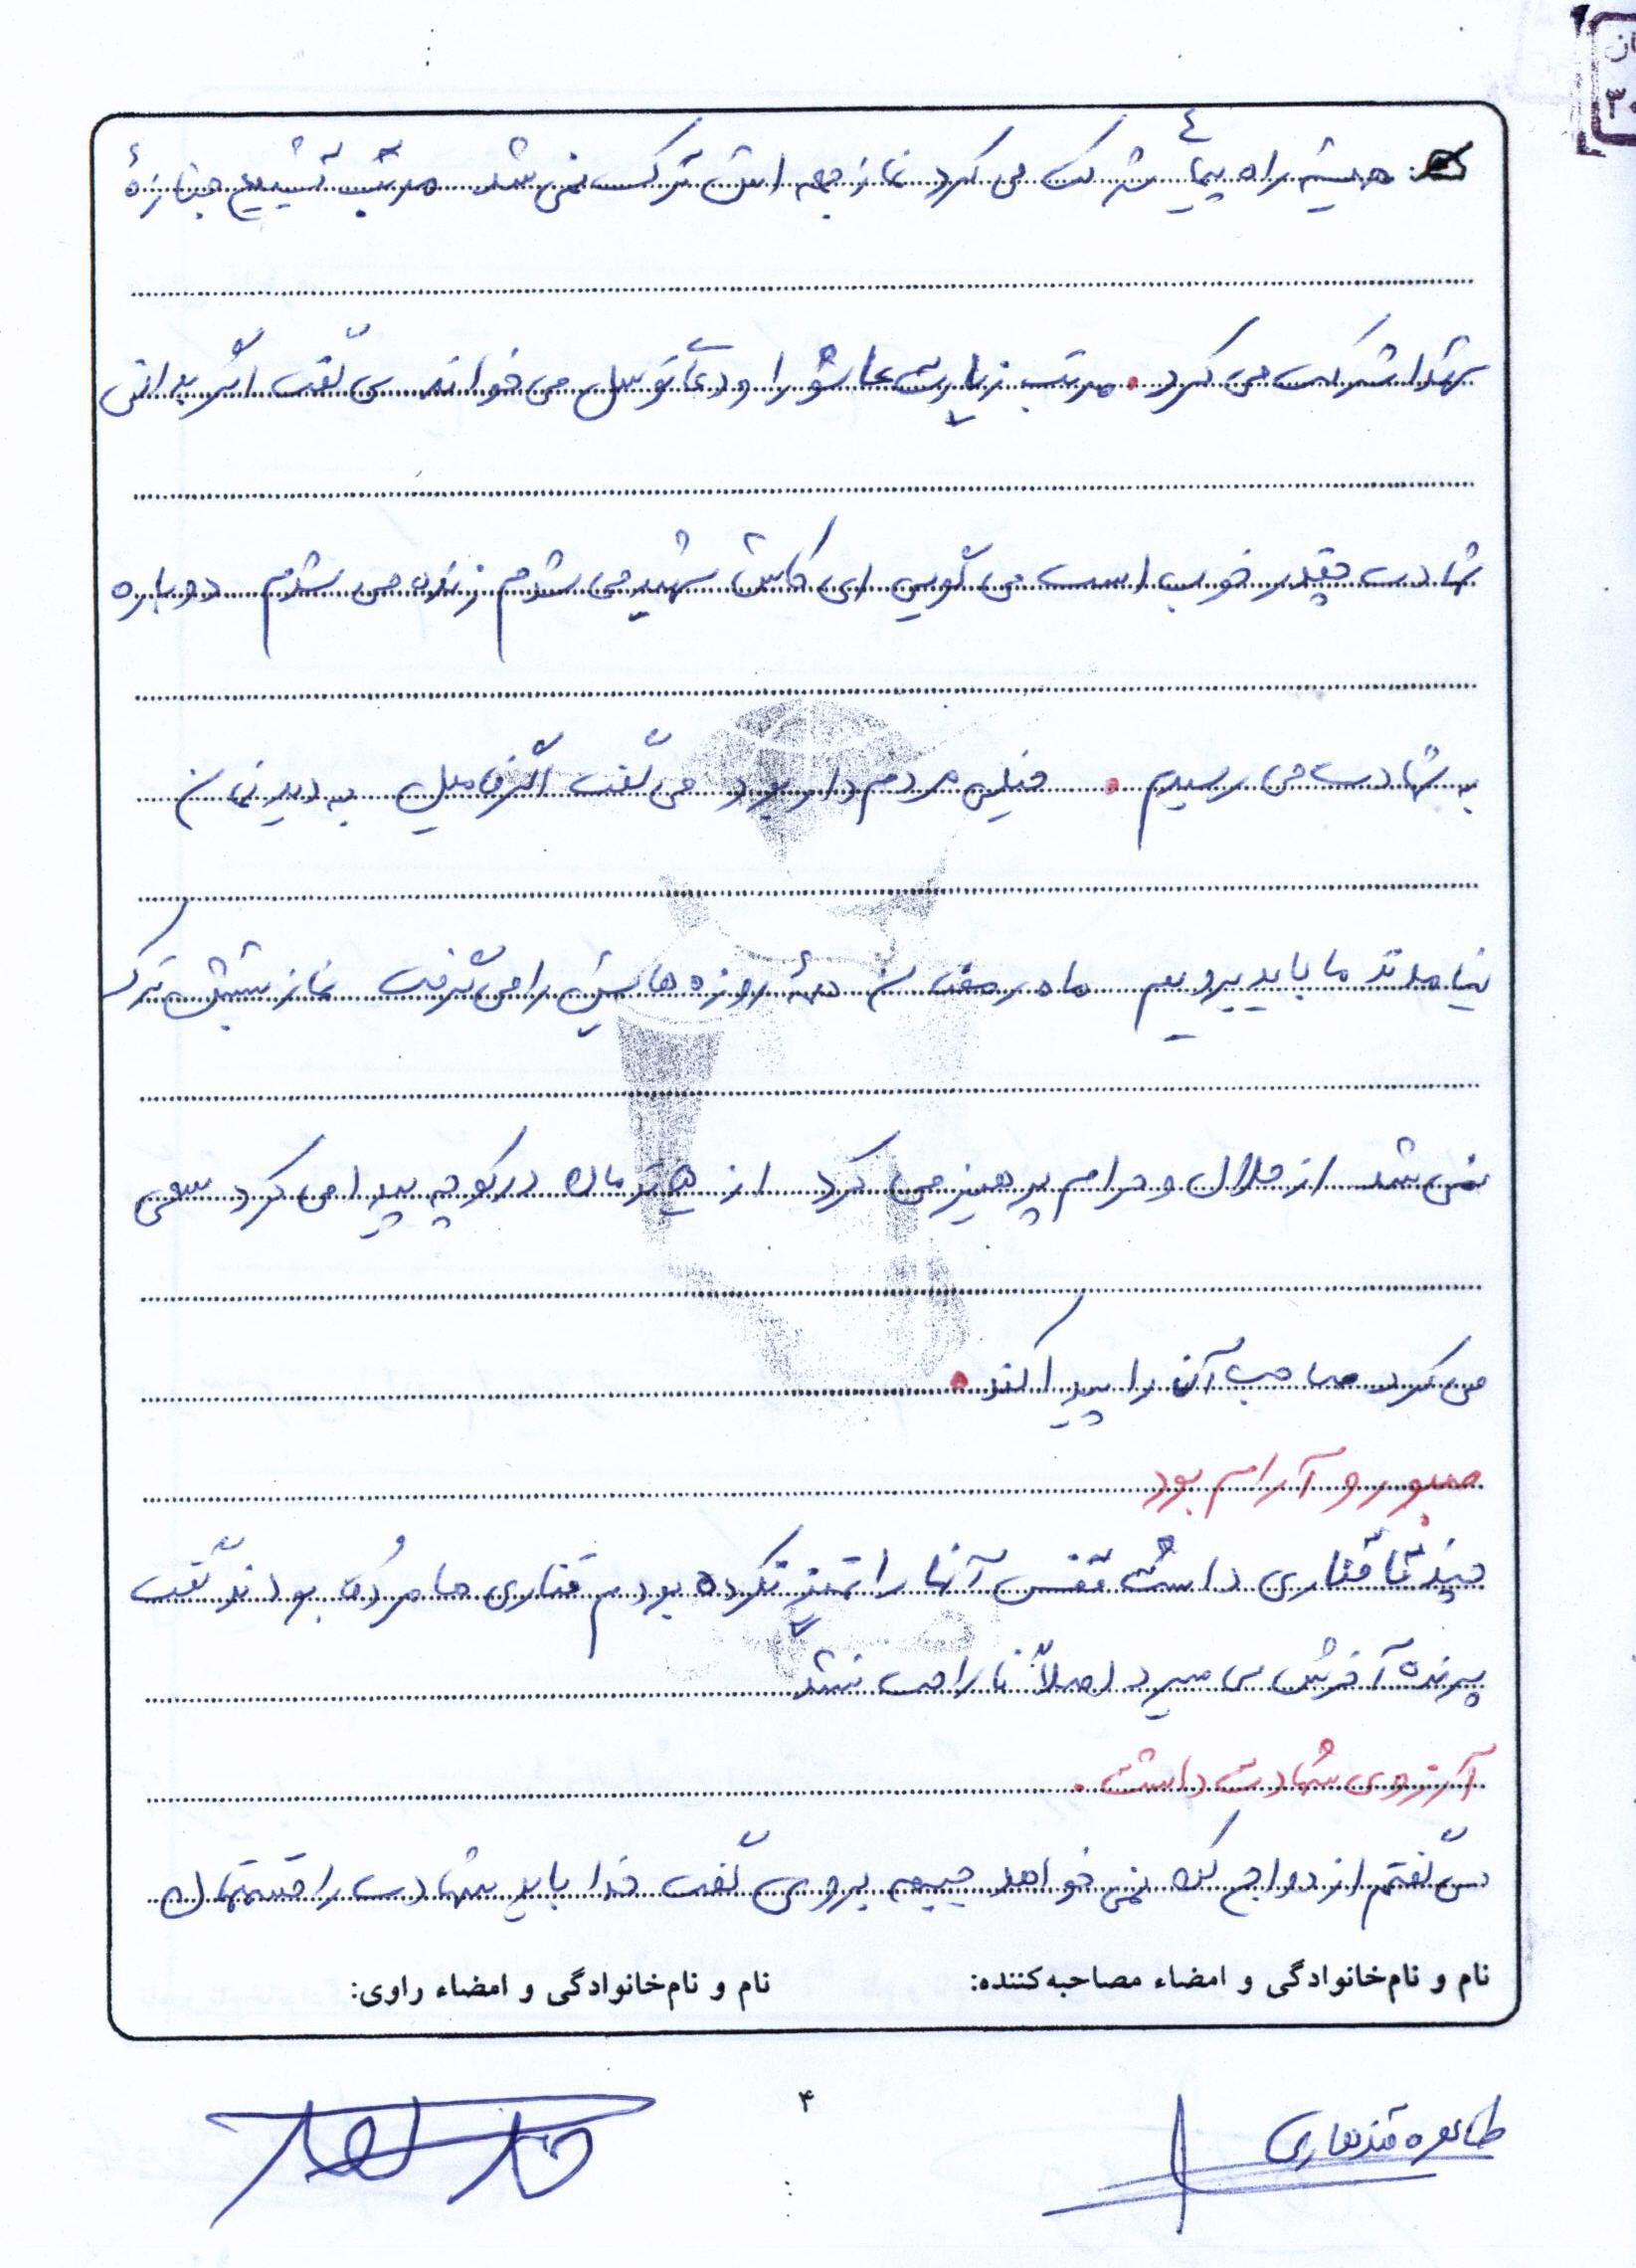 همیشه راه پیمائی شرکت می کرد نماز جمعه اش ترک نمی شد مرتب تشییع جنازهٔ
شهدا شرکت می کرد. مرتب زیارت عاشورا و دعا توسل می خواند می گفت اگر بدانی
شهادت چقدر خوب است می گویی ای کاش شهید می شدم زنده می شدم دوباره
به شهادت می رسیدم. خیلی مردم دار بود می گفت اگر فامیل به دیدنمان
نیامدند ما باید برویم ماه رمضان همهٔ روزه هایش را می گرفت نماز شبش ترک
نمی شد از حلال و حرام پرهیز می کرد از در کوچه پیدا می کرد سعی
می کرد صاحب آن را پیدا کند.
صبور و آرام بود
چند تا قناری داشت قفس آنها را تمیز نکرده بودم قناری ها مرده بودند گفت
پرنده آخرش می میرد اصلاً ناراحت نشد
آرزوی شهادت داشت.
می گفتم ازدواج کن نمی خواهد جبهه بروی گفت خدا باید شهادت را قسمتمان
نام و نام‌خانوادگی و امضاء مصاحبه‌کننده: نام و نام‌خانوادگی و امضاء راوی:
طاهره قندهاری
۴